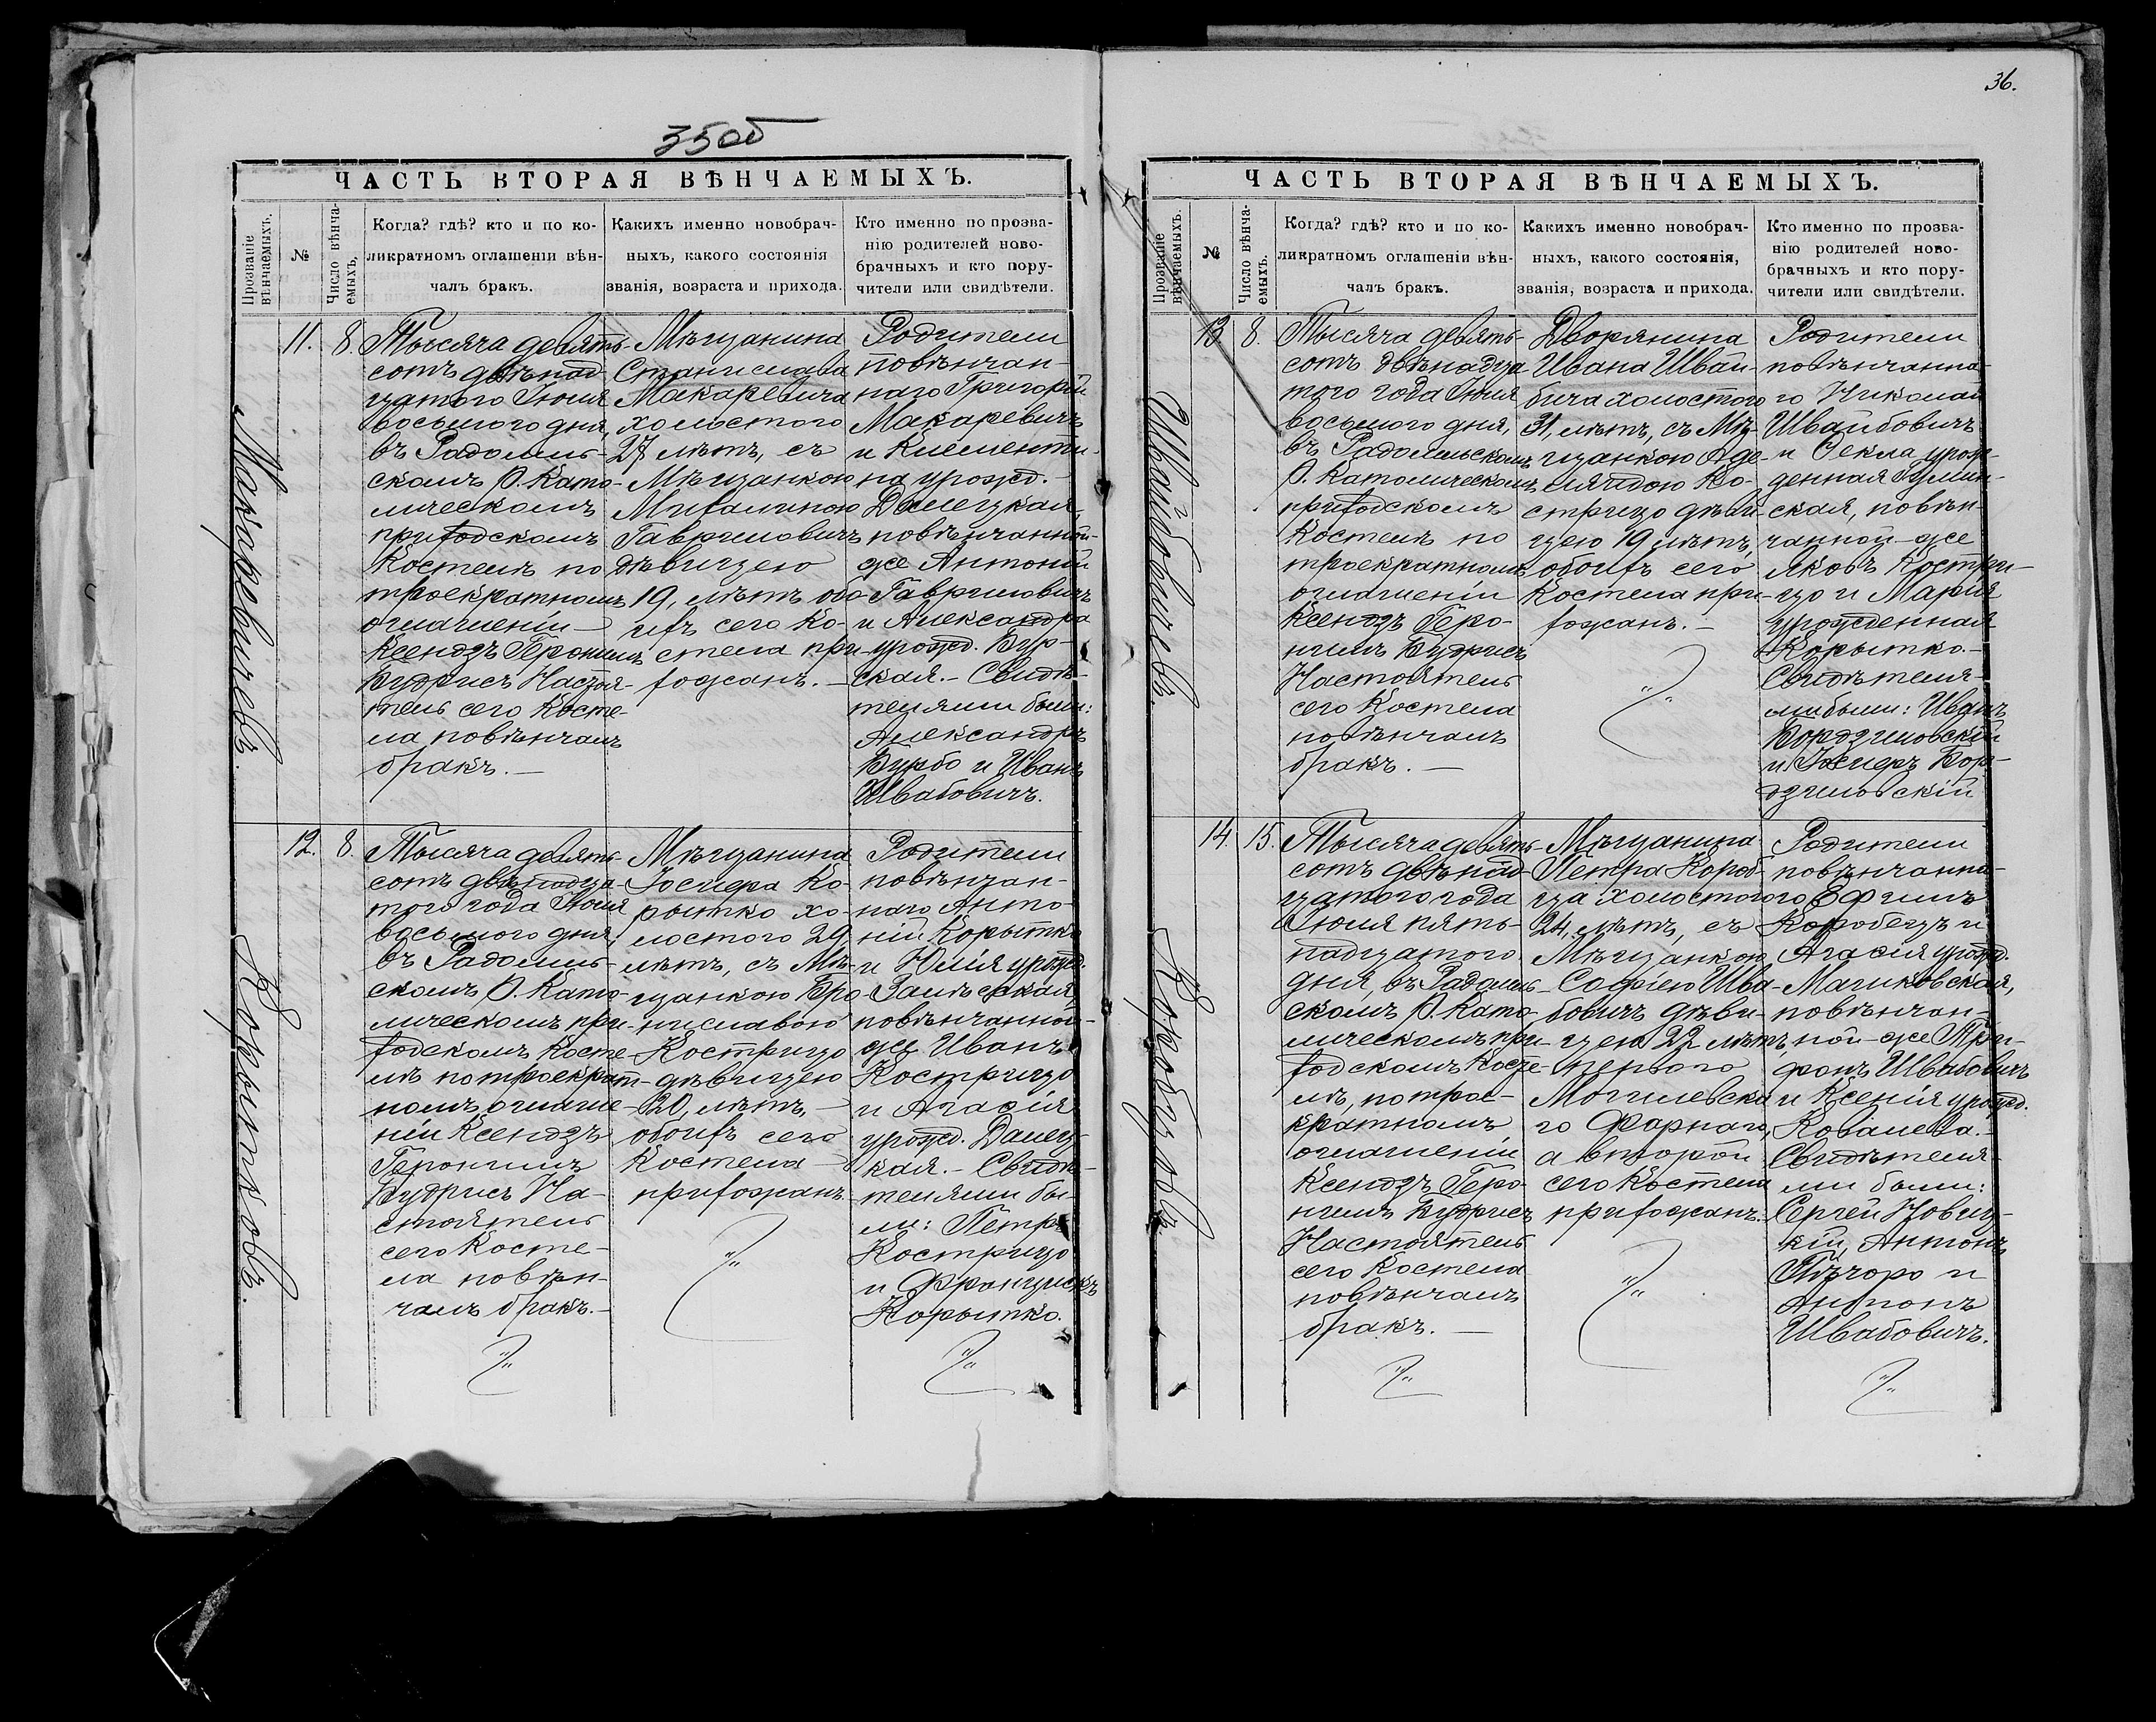 35об
ЧАСТЬ ВТОРАЯ ВѢНЧАЕМЫХЪ.
Прозваніе вѣнчаемыхъ.
№
Число вѣнча-
емыхъ.
Когда? гдѣ? кто и по ко-
ликратномъ оглашеніи вѣн-
чалъ бракъ.
Какихъ именно новобрач-
ныхъ, какого состоянія
званія, возраста и прихода.
Кто именно по прозва-
нію родителей ново-
брачныхъ и кто пору-
чители или свидѣтели.
Макаревичевъ.
11.
8.
Тысяча девять-
сотъ двѣнад-
цатого Іюля
восьмого дня,
въ Радомль-
скомъ Р. Като-
лическомъ
приходскомъ
Костелѣ по
троекратномъ
оглашеніи
Ксендзъ Геронимъ
Будрисъ Настоя-
тель сего Косте-
ла повѣнчалъ
бракъ.
Мѣщанина
Станислава
Макаревича
холостого
27 лѣтъ, съ
Мѣщанкою
Михалиною
Гавриловичъ
дѣвицею
19, лѣтъ обо-
ихъ сего Ко-
стела при-
хожанъ.
Родители
повѣнчан-
наго Григорій
Макаревичъ
и Клементи-
на урожд.
Далецкая
повѣнчанной-
же Антоній
Гавриловичъ
и Александра
урожд. Бур-
ская. - Свидѣ-
телями были:
Александръ
Бурбо и Иванъ
Швабовичъ.
Корытковъ.
12.
8.
Тысяча девять-
сотъ двѣнадца-
того года Іюля
восьмого дня,
въ Радомль-
скомъ Р. Като-
лическомъ при-
ходскомъ Косте-
лѣ по троекрат-
номъ оглаше-
ніи Ксендзъ
Геронимъ
Будрисъ На-
стоятель
сего Косте-
ла повѣн-
чалъ бракъ.
Мѣщанина
Іосифа Ко-
рытко хо-
лостого 29
лѣтъ, съ Мѣ-
щанкою Бро-
ниславою
Кострицо
дѣвицею
20, лѣтъ,
обоихъ сего
Костела
прихожанъ
Родители
повѣнчан-
наго Анто-
ній Корытко
и Юлія урожд.
повѣнчанной-
же Иванъ
Кострицо
и Агафія
урожд. Далец-
кая. - Свидѣ-
телями бы-
ли: Петръ
Кострицо
и Францискъ
Корытко.
36.
ЧАСТЬ ВТОРАЯ ВѢНЧАЕМЫХЪ.
Прозваніе вѣнчаемыхъ.
№
Число вѣнча-
емыхъ.
Когда? гдѣ? кто и по ко-
ликратномъ оглашеніи вѣн-
чалъ бракъ.
Какихъ именно новобрач-
ныхъ, какого состоянія,
званія, возраста и прихода.
Кто именно по прозва-
нію родителей ново-
брачныхъ и кто пору-
чители или свидѣтели.
Швайбовичевъ.
13
8.
Тысяча девять-
сотъ двѣнадца
того года Іюля
восьмого дня,
въ Радомльскомъ
Р. Католическомъ
приходскомъ
Костелѣ по
троекратномъ
оглашеніи
Ксендзъ Геро-
нимъ Будрисъ
Настоятель
сего Костела
повѣнчалъ
бракъ.
Дворянина
Ивана Швай-
бича холостого
31, лѣтъ, съ Мѣ-
щанкою Аде-
Ко-
стрицо дѣви-
цею 19 лѣтъ,
обоихъ сего
Костела при-
хожанъ.
Родители
повѣнчанна-
го Николай
Швайбовичъ
и Фекла урож-
денная
повѣн-
чанной-же
Яковъ Костри-
цо и Марія
урожденная
Корытко.
Свидѣтеля-
ми были: Иванъ
Бордзиловскій
и Іосифъ Бор-
дзиловскій
Коробцовъ.
14.
15.
Тысяча девять-
сотъ двѣнад-
цатого года
Іюля пять-
надцатого
дня, въ Радомль-
скомъ Р. Като-
лическомъ при-
ходскомъ Косте-
лѣ, по трое-
кратномъ
оглашеніи
Ксендзъ Геро-
нимъ Будрисъ
Настоятель
сего Костела
повѣнчалъ
бракъ.
Мѣщанина
Петра Короб-
ца холостого
24, лѣтъ, съ
Мѣщанкою
Софіею Шва-
бовичъ дѣви-
цею 22 лѣтъ,
первого
Могилевска
го Фарнаго,
а второй
сего Костела
прихожанъ.
Родители
повѣнчанна-
го Ефимъ
Коробецъ и
Агафія урожд.
повѣнчан-
ной-же Три-
фонъ Швабовичъ
и Ксенія урожд.
Ковалева.
Свидѣтеля-
ми были:
Сергей Новиц-
кій, Антонъ
и
Антонъ
Швабовичъ.